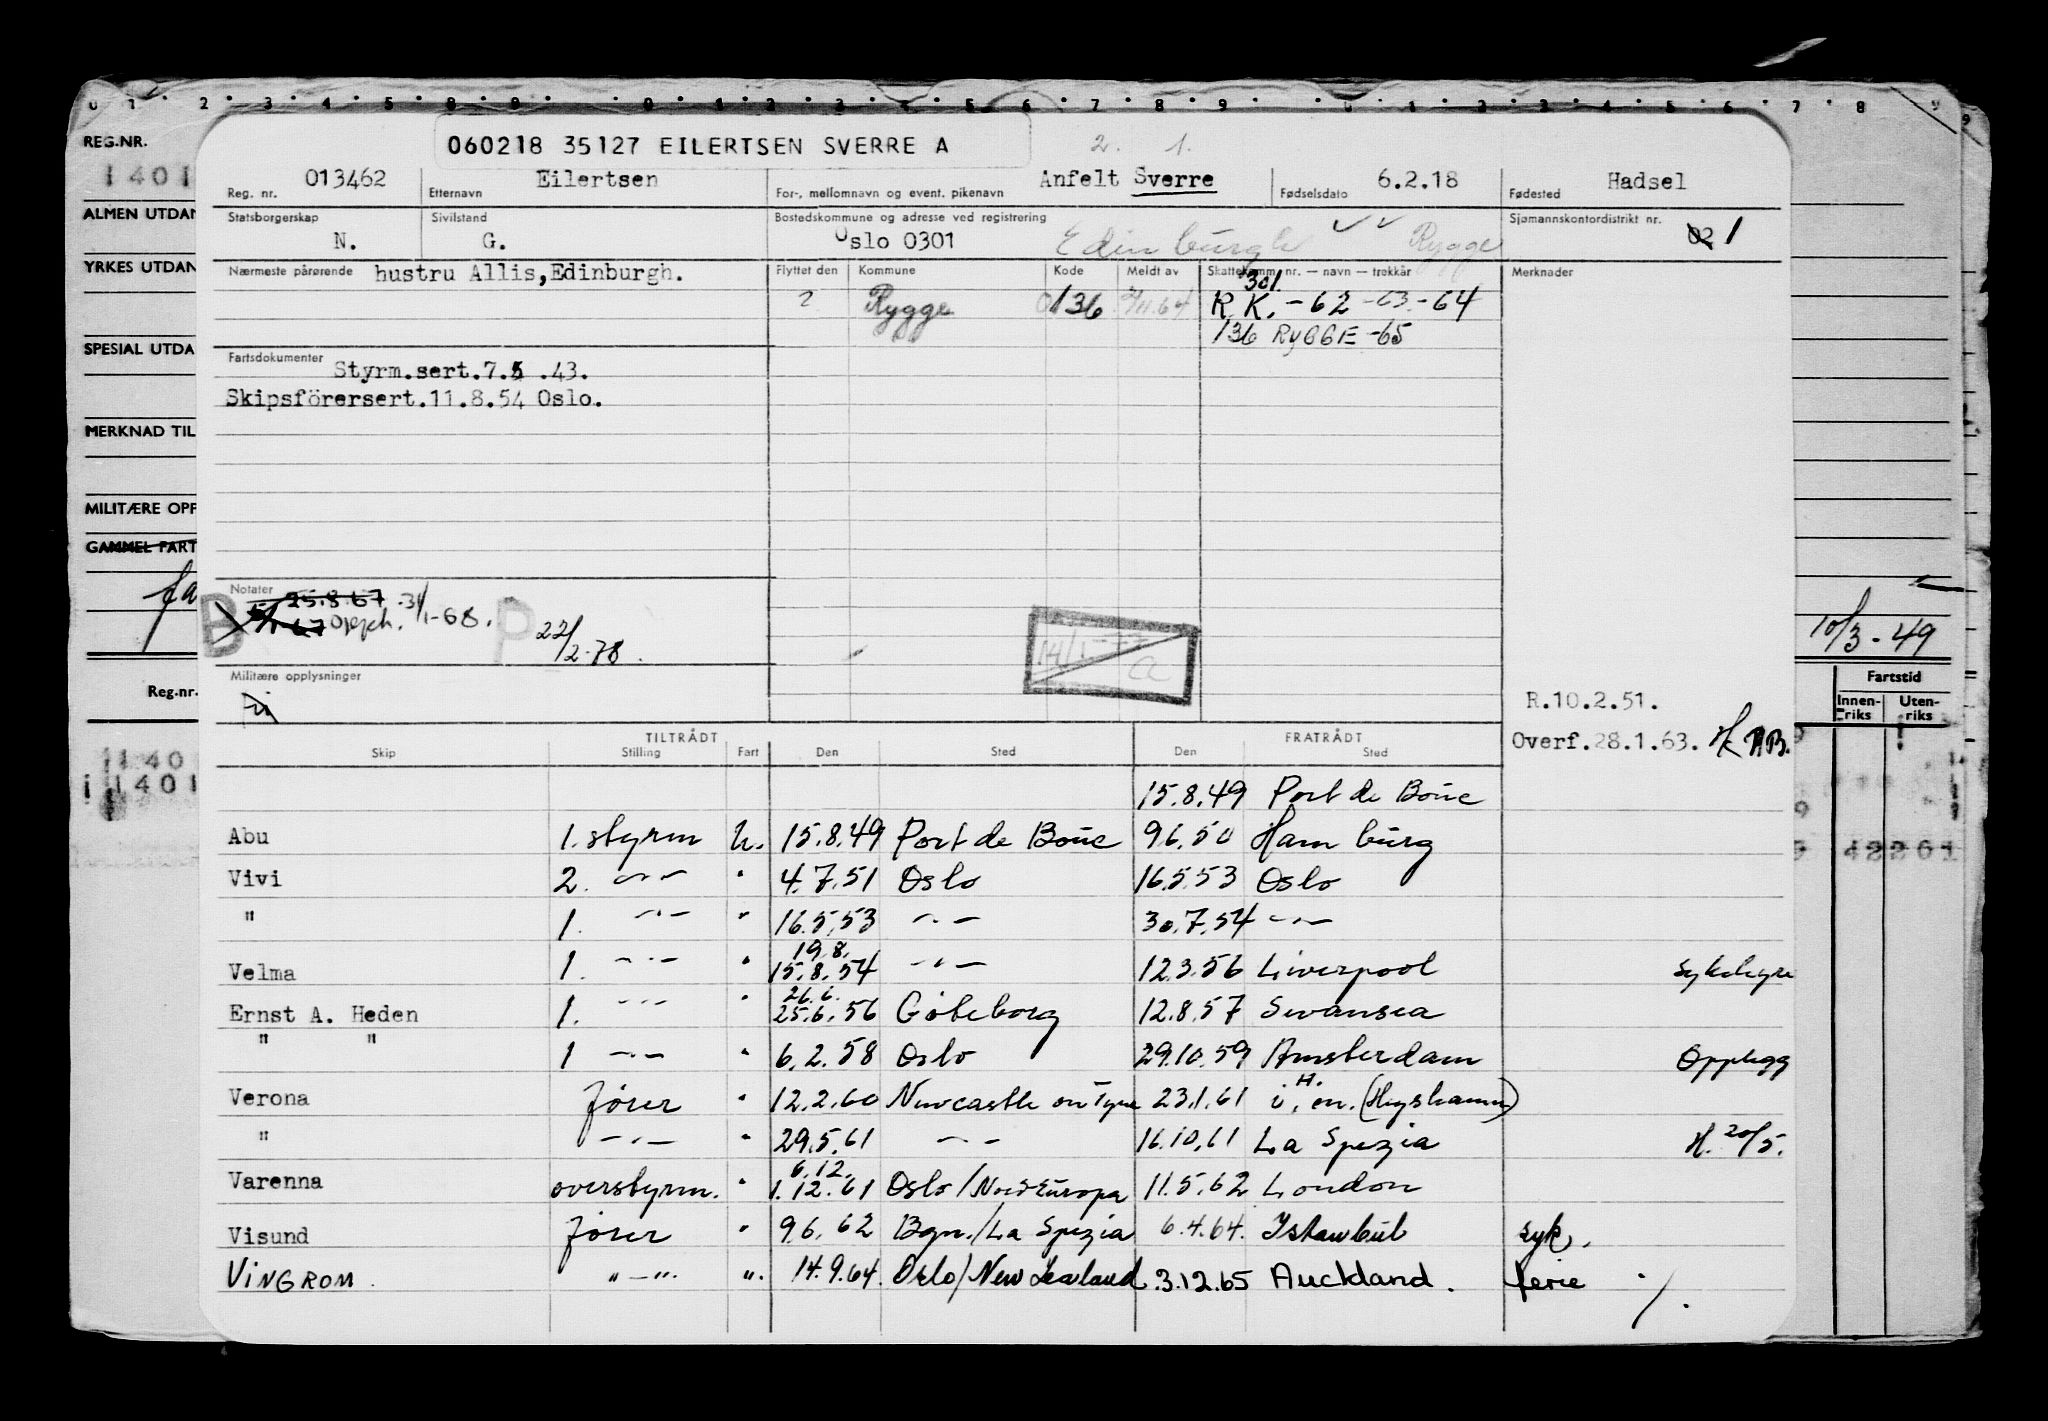 0 1 2 3 4 5 8 9 0 1 2 3 4 5 6 7 8 9 0 1 2 3 4 5 6 7 8 9
REG.NR.
1401
ALMEN UTDAN
YRKES UTDAN
SPESIAL UTDA
MERKNAD TIL
MILITÆRE OPP
GAMMEL FART
fa
Reg.nr.
1140
11401
060218 35127 EILERTSEN SVERRE A
2. 1.
Reg. nr. 013462 Etternavn Eilertsen For-, mellomnavn og event. pikenavn Anfelt Sverre Fødselsdato 6.2.18 Fødested Hadsel
Statsborgerskap Sivilstand Bostedskommune og adresse ved registrering Sjømannskontordistrikt nr.
N. G. Oslo 0301 Edinburgh Rygge 02 1
Nærmeste pårørende hustru Allis,Edinburgh. Flyttet den Kommune Kode Meldt av Skattekomm. nr. — navn — trekkår Merknader
301
? Rygge 0136 2/11.64 R.K. -62 -63 -64
136 RYGGE -65
Fartsdokumenter Styrm.sert.7.5 .43.
Skipsförersert.11.8.54 Oslo.
Notater 25.8.67 31/1-68.
B 67 Opph. P 22/2-78.
14/1-77 a
Militære opplysninger
Fri
R.10.2.51.
Overf.28.1.63. H AB.
10/3-49
Fartstid
Innen-riks Uten-riks
42261
TILTRÅDT FRATRÅDT
Skip Stilling Fart Den Sted Den Sted
15.8.49 Port de Bouc
Abu 1. styrm U. 15.8.49 Port de Bouc 9.6.50 Hamburg
Vivi 2. -"- " 4.7.51 Oslo 16.5.53 Oslo
" 1. -"- " 16.5.53 -"- 30.7.54 -"-
19.8.
Velma 1. -"- " 15.8.54 -"- 12.3.56 Liverpool Sykehyre
26.6.
Ernst A. Heden 1. -"- " 25.6.56 Göteborg 12.8.57 Swansea
" " 1 -"- " 6.2.58 Oslo 29.10.59 Amsterdam Opplegg
Verona fører " 12.2.60 Newcastle on Tyne 23.1.61 i. H. en. (Heysham)
" -"- " 29.5.61 -"- 16.10.61 La Spezia H. 20/5.
6.12.
Varenna overstyrm. " 1.12.61 Oslo/Nord Europa 11.5.62 London
Visund fører " 9.6.62 Bgn./La Spezia 6.4.64. Istanbul syk.
VINGROM. "-" ". 14.9.64. Oslo/New Zealand 3.12.65 Auckland. ferie ./.